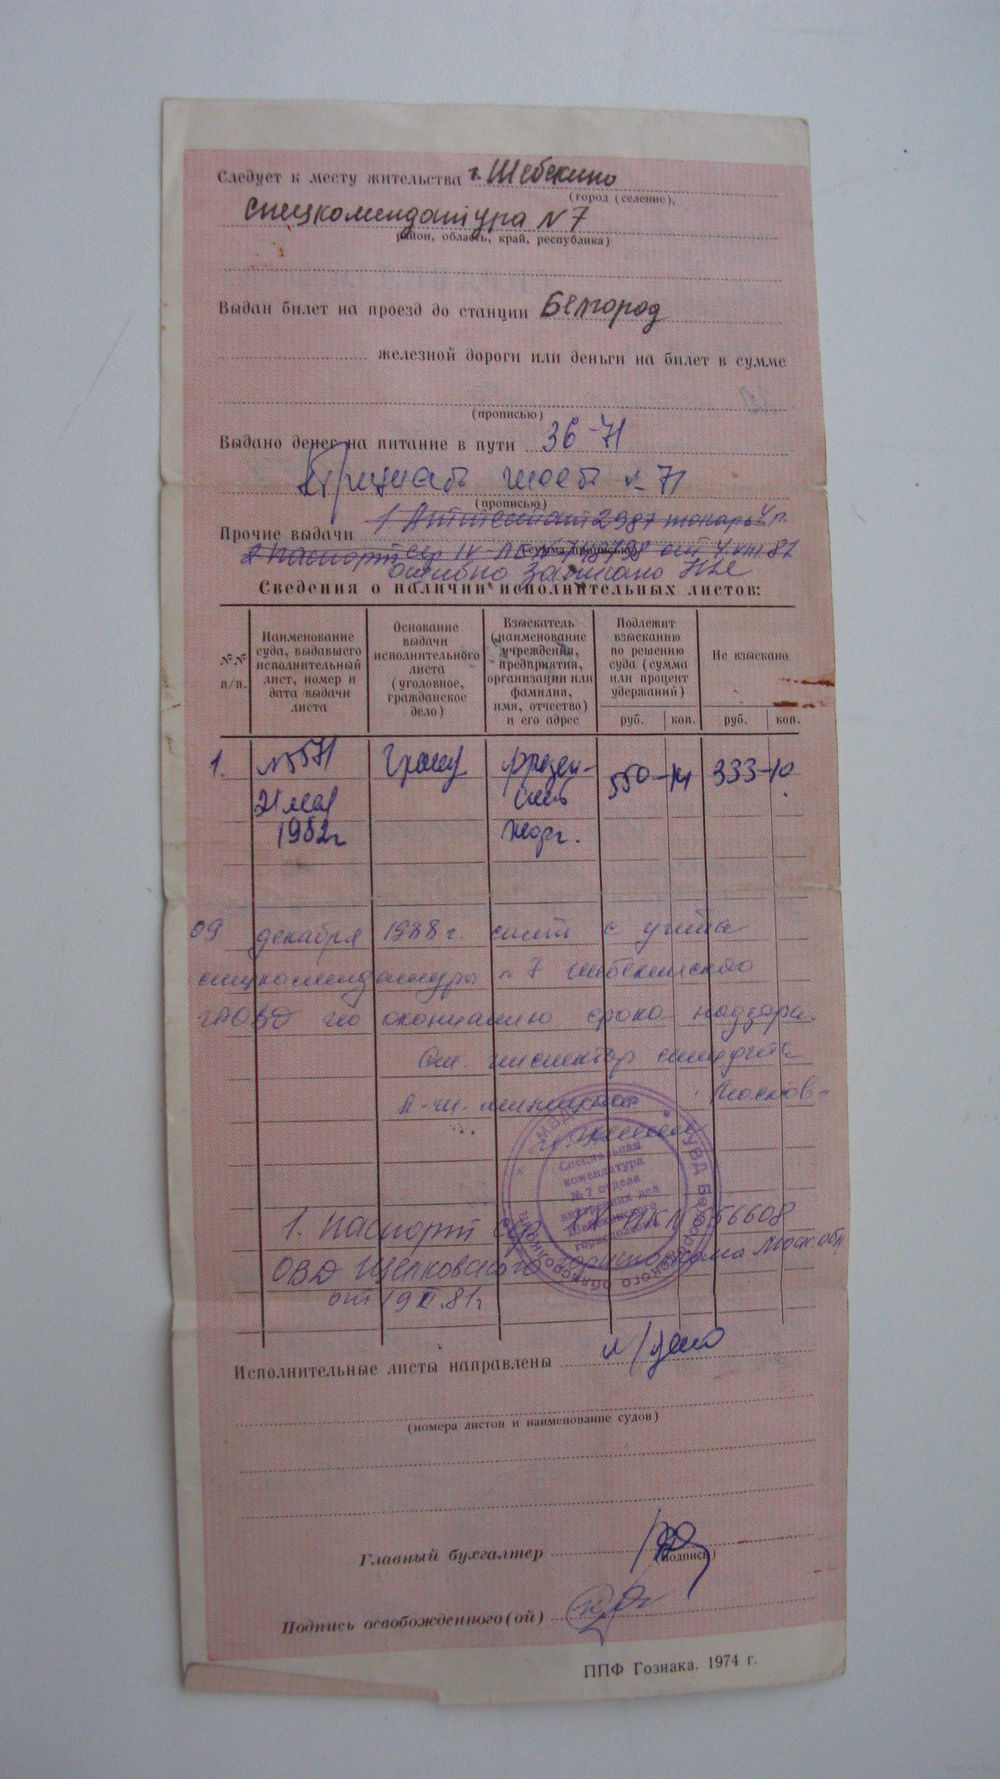 Следует к месту жительства г. Шебекино
(город (селение),
спецкомендатура N 7
район, область, край, республика)
Выдан билет на проезд до станции Белгород
железной дороги или деньги на билет в сумме
(прописью)
Выдано денег на питание в пути 36-71
Тридцать шесть 71
(прописью)
Прочие выдачи 1 Аттестат 2987 токарь 4 р.
(сумма прописью)
2 Паспорт сер IX- от 4 VIII 82
ошибно записано
Сведения о наличии исполнительных листов:
№№ п/п.
Наименование суда, выдавшего исполнительный лист, номер и дата выдачи листа
Основание выдачи исполнительного листа (уголовное, гражданское дело)
Взыскатель (наименование учреждения, предприятия, организации или фамилия, имя, отчество) и его адрес
Подлежит взысканию по решению суда (сумма или процент удержаний)
Не взыскано
руб. коп. руб. коп.
1. N 5571 550-14 333-10
21 мая
1982г
09 декабря 1988 г. снят с учета
спецкомендатуры N 7 Шебекинского
ГРОВД по окончанию срока надзора.
Ст. инспектор спецчасти
МВД УВД
Специальная
комендатура
№ 7 отдела
внутренних дел
Шебекинского
горисполкома
1. Паспорт сер 656608
ОВД Щелковского горисполкома Моск. обл
от 19 81г
Исполнительные листы направлены
(номера листов и наименование судов)
Главный бухгалтер
(подпись)
Подпись освобожденного(ой)
ППФ Гознака. 1974 г.